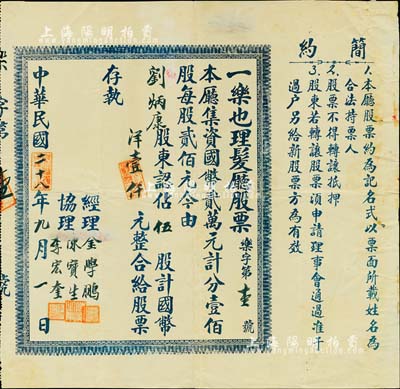 上海陽明拍賣
簡約
1.本廳股票約為記名式以票面所載姓名為
合法持票人
2.股票不得轉讓抵押
3.股東若轉讓股票須申請理事會通過准予
過戶另給新股票方為有效
一樂也理髮廳股票
樂字第 壹 號
本廳集資國幣貳萬元計分壹佰
股每股貳佰元今由
劉炳康 股東認佔 伍 股計國幣
洋壹仟 元整合給股票
存執
經理 金學鵬
協理
李宏奎
中華民國二十八年九月一日
樂字第 壹 號